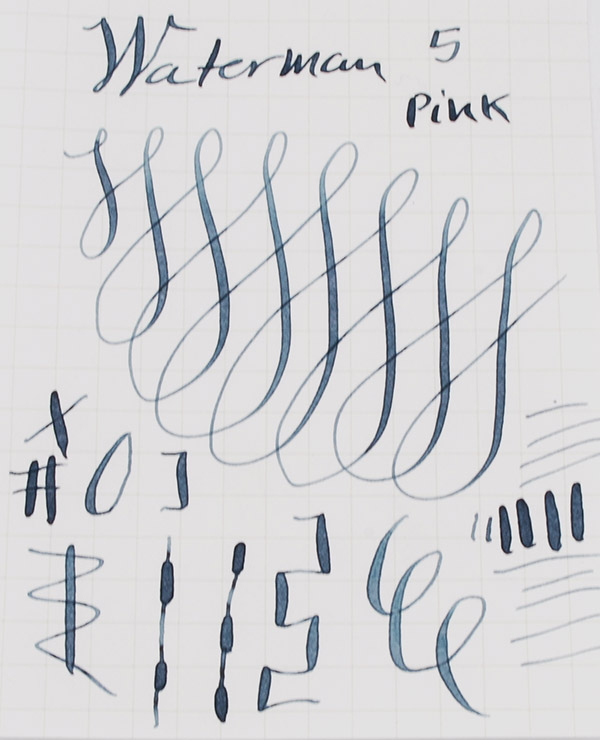 Waterman 5
Pink